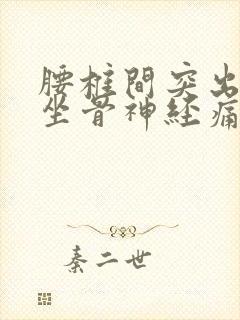 腰椎間突出
坐骨神経痛
秦二世